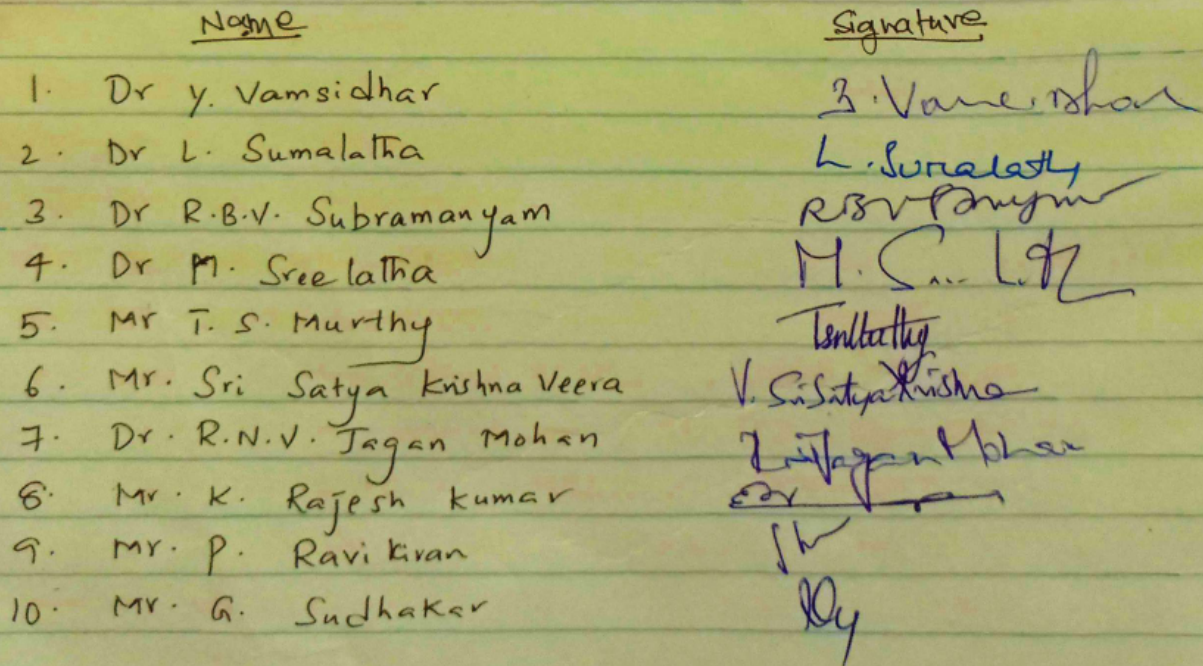 Name Signature
1. Dr Y. Vamsidhar
2. Dr L. Sumalatha L. Sumalatha
3. Dr R.B.V. Subramanyam
4. Dr M. Sreelatha
5. Mr T. S. Murthy
6. Mr. Sri Satya Krishna Veera V. Sri Satya Krishna
7. Dr. R.N.V. Jagan Mohan Jagan Mohan
8. Mr. K. Rajesh Kumar
9. Mr. P. Ravi Kiran
10. Mr. G. Sudhakar